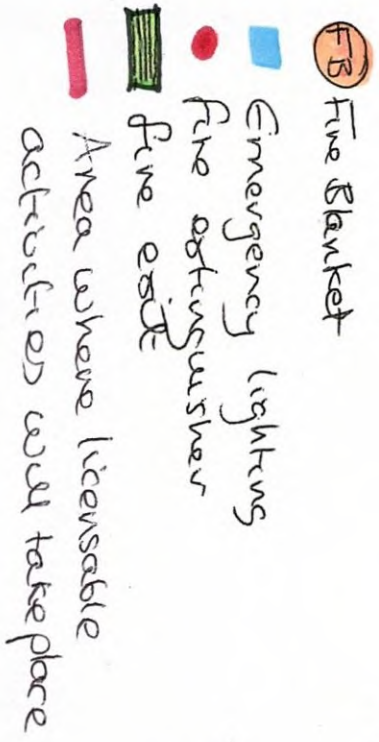 FB Fire Blanket
Emergency lighting
Fire extinguisher
fire exit
Area where licensable
activities will take place